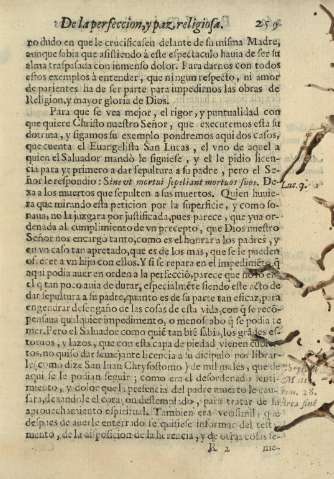 De la perfeccion, y paz religiosa. 259
no dudo en que le crucificasen delante de su misma Madre,
aunque sabia que assistiendo à este espectaculo havia de ser su
alma traspasada con inmenso dolor. Para darnos con todos
estos exemplos à entender, que ningun respecto, ni amor
de parientes ha de ser parte para impedirnos las obras de
Religion, y mayor gloria de Dios.
Para que se vea mejor, el rigor, y puntualidad con
que quiere Christo nuestro Señor, que executemos esta su
dotrina, y sigamos su exemplo pondremos aqui dos casos,
que cuenta el Evangelista San Lucas, el vno de aquel a
quien el Salvador mandò le siguiese, y el le pidio licen-
cia para yr primero a dar sepultura a su padre, pero el Se-
ñor le respondio: Sine vt mortui sepeliant mortuos suos, De-
xa a los muertos que sepulten a sus muertos. Quien huvie-
ra que mirando esta peticion por la superficie, y como so-
nava, no la juzgara por justificada, pues parece, que yva or-
denada al cumplimiento de vn precepto, que Dios nuestro
Señor nos encarga tanto, como es el honrar a los padres, y
en vn caso tan apretado, que es de los mas, que se le pueden
ofrecer a vn hijo con ellos. Y si se repara en el impedimento, q
aqui podia auer en orden a la perfeccion, parece que no
el q tan poco auia de durar, especialmẽte siendo este acto de
dar sepultura a su padre, quanto es de su parte tan eficaz, para
engendrar desengaño de las cosas de esta vida, con q se reco-
pensaua qualquier impedimento, o menoscabo q se podia te-
mer. Pero el Salvador como quiẽ tan biẽ sabia, los
y lazos, que con esta capa de piedad vienen
no quiso dar semejante licencia a su dicipulo por librar-
le, como dize San Iuan Chrysostomo, de mil males, que de
aqui se le podian seguir; como era el desordenado senti-
miento, y dolor que la presencia del padre muerto le cau-
sara, dexandole el coraçon destemplado, para tratar de su
aprouechamiento espiritual. Tambien era verisimil, que
despues de auerle enterrado se quisiese informar del test
mento, de la disposicion de la herencia, y de otras cosas se-
R 2 me-
Luc. 9.